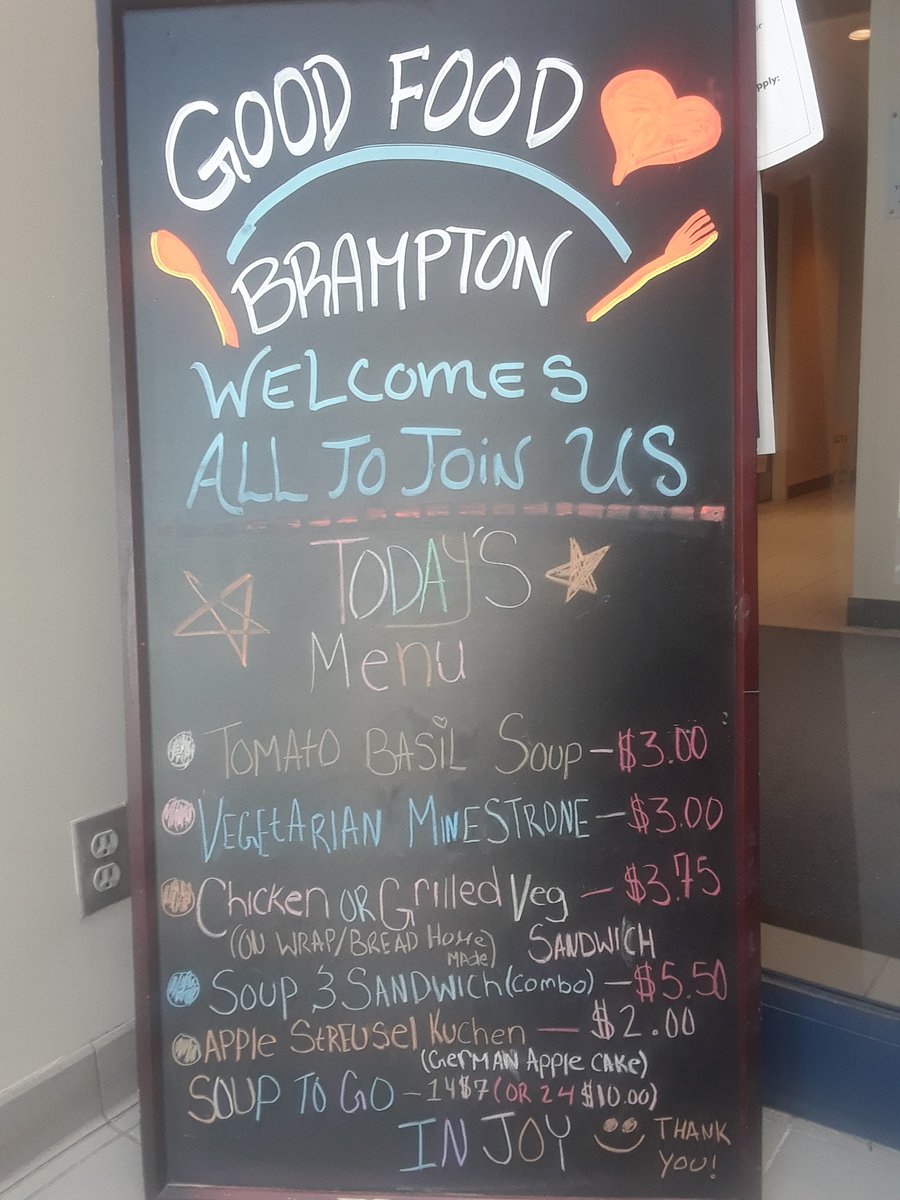 GOOD FOOD
BRAMPTON
WELCOMES
ALL TO JOIN US
TODAY'S
Menu
TOMATO BASIL SOUP - $3.00
VEGETARIAN MINESTRONE - $3.00
Chicken OR Grilled Veg - $3.75
(ON WRAP/BREAD HOME MADE) SANDWICH
SOUP & SANDWICH (COMBO) - $5.50
APPLE STREUSEL KUCHEN - $2.00
(GERMAN APPLE CAKE)
SOUP TO GO - 14$7 (OR 24 $10.00)
IN JOY THANK
YOU!
pply: